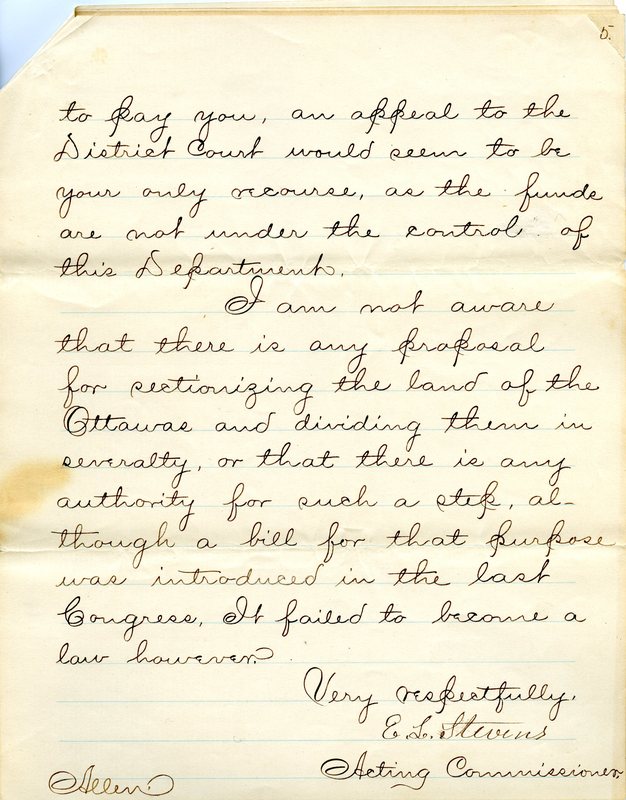 5.
to pay you, an appeal to the
District Court would seem to be
your only recourse, as the funds
are not under the control of
this Department.
I am not aware
that there is any proposal
for sectionizing the land of the
Ottawas and dividing them in
severalty, or that there is any
authority for such a step, al-
though a bill for that purpose
was introduced in the last
Congress. It failed to become a
law however.
Very respectfully.
E. L. Stevens
Acting Commissioner
Allen.